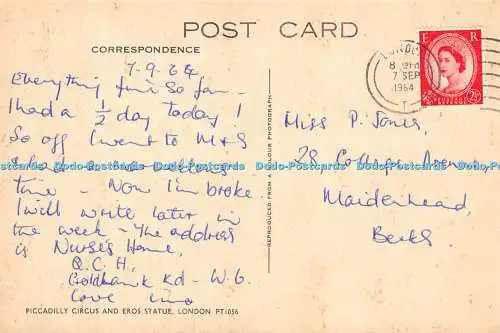 POST CARD
CORRESPONDENCE
7-9-64
Everything fine so far -
I had a ½ day today !
So off I went to M+S
time - Now I'm broke.
I will write later in
the week - The address
is Nurses Home,
Q.C.H,
Goldhawk Rd - W.6
Love
PICCADILLY CIRCUS AND EROS STATUE, LONDON PT1056
REPRODUCED FROM A COLOUR PHOTOGRAPH
LONDON
8
7 SEP
1964
T
E R
2½D
Miss P. Jones,
28 College Avenue,
Maidenhead,
Berks
Data Postcards www.data-postcards.com